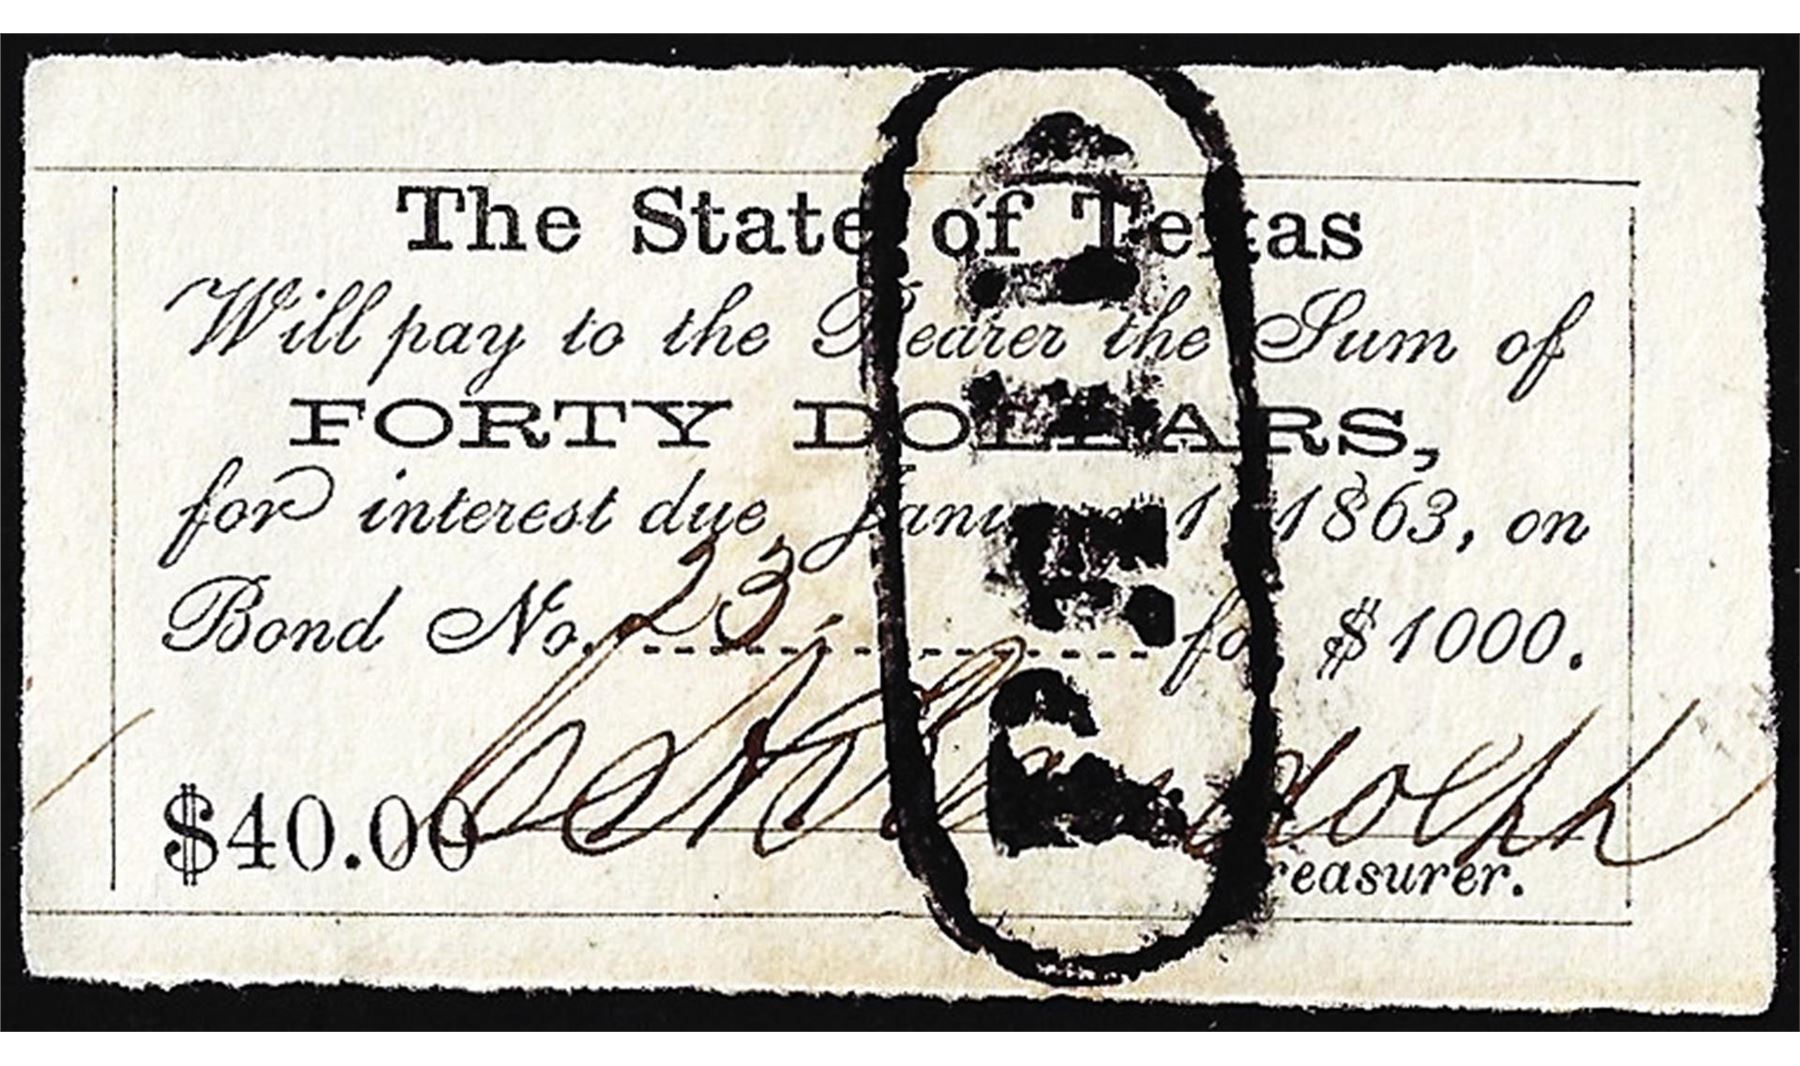 The State of Texas
Will pay to the Bearer the Sum of
FORTY DOLLARS,
for interest due January 1, 1863, on
Bond No. 23 for $1000.
C H Randolph
$40.00
Treasurer.
PAID